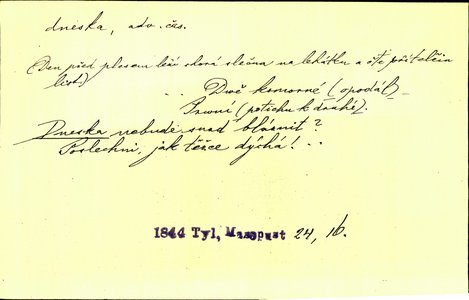 dneska, adv. čas.
(Den před plesem leží chorá slečna na lehátku a čte přítelčin
list.)
. . Dvě komorné (opodál)_
První (potichu k druhé).
Dneska nebude snad blásnit?
Poslechni, jak těžce dýchá! . .
1844 Tyl, Masopust 24, 1b.